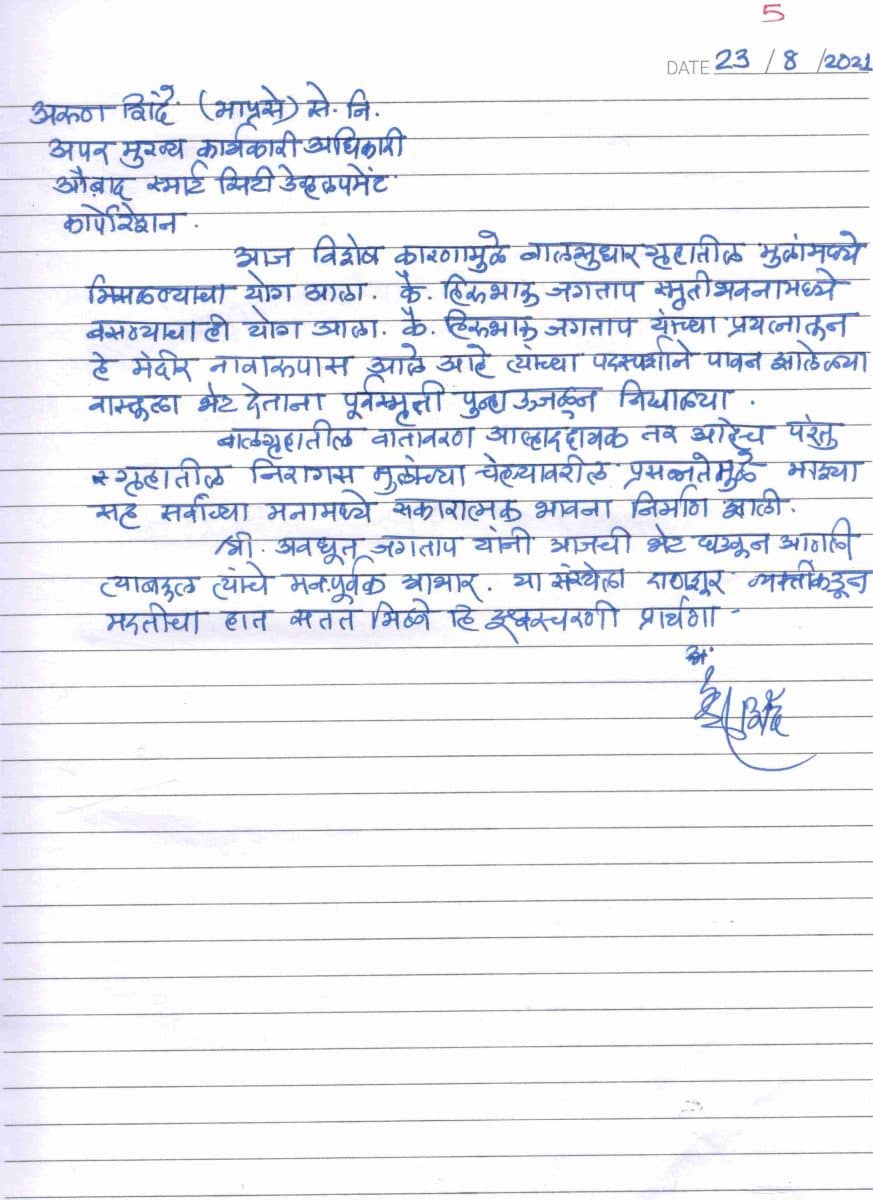 5
DATE 23 / 8 /2021
अरुण शिंदे (भाप्रसे) से. नि.
अपर मुख्य कार्यकारी अधिकारी
औ.बाद स्मार्ट सिटी डेव्हलपमेंट
कार्पोरेशन.
आज विशेष कारणामुळे बालसुधार गृहातील मुलांमध्ये
मिसळण्याचा योग आला. कै. हिरुभाऊ जगताप स्मृतीभवनामध्ये
बसण्याचाही योग आला. कै. हिरुभाऊ जगताप यांच्या प्रयत्नातून
हे मंदीर नावारुपास आले आहे त्यांच्या पदस्पर्शाने पावन झालेल्या
वास्तूला भेट देताना पूर्वस्मृती पुन्हा उजळून निघाल्या.
बालगृहातील वातावरण आल्हाददायक तर आहेच परंतु
गृहातील निरागस मुलांच्या चेहऱ्यावरील प्रसन्नतेमुळे माझ्या
सह सर्वांच्या मनामध्ये सकारात्मक भावना निर्माण झाली.
श्री. अवधूत जगताप यांनी आजची भेट घडवून आणली
त्याबद्दल त्यांचे मनःपूर्वक आभार. या संस्थेला दानशूर व्यक्तींकडून
मदतीचा हात सतत मिळो हि ईश्वरचरणी प्रार्थना -